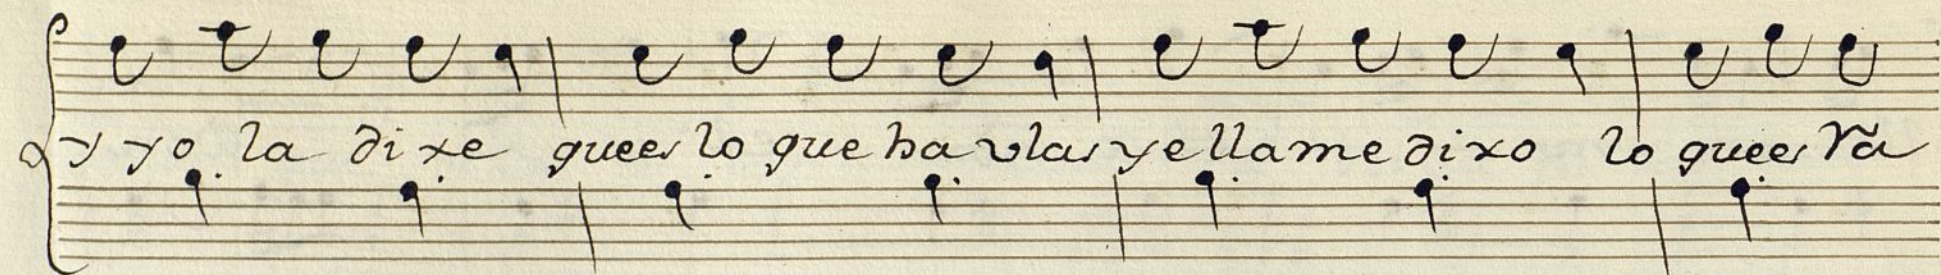 y yo la dixe quees lo que havlas y ella me dixo lo quees Ra